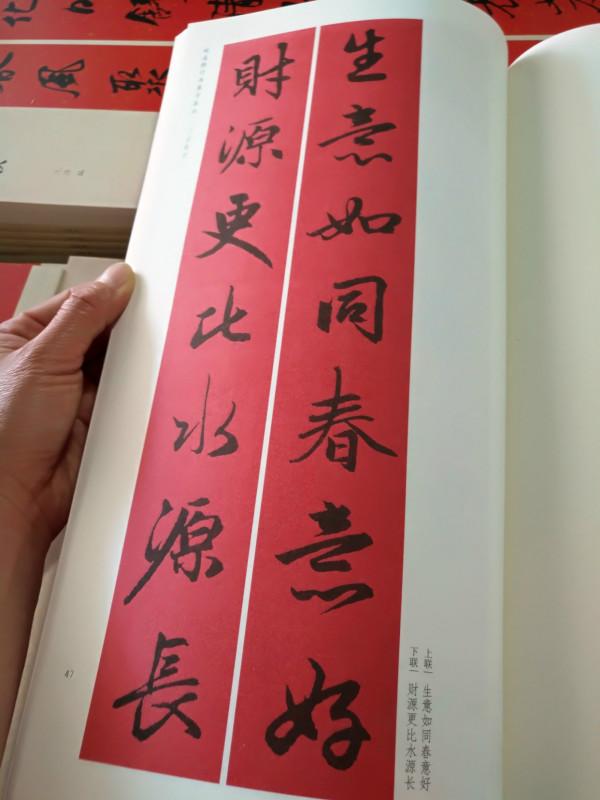 生意如同春意好
財源更比水源長
上联｜生意如同春意好
下联｜财源更比水源长
47